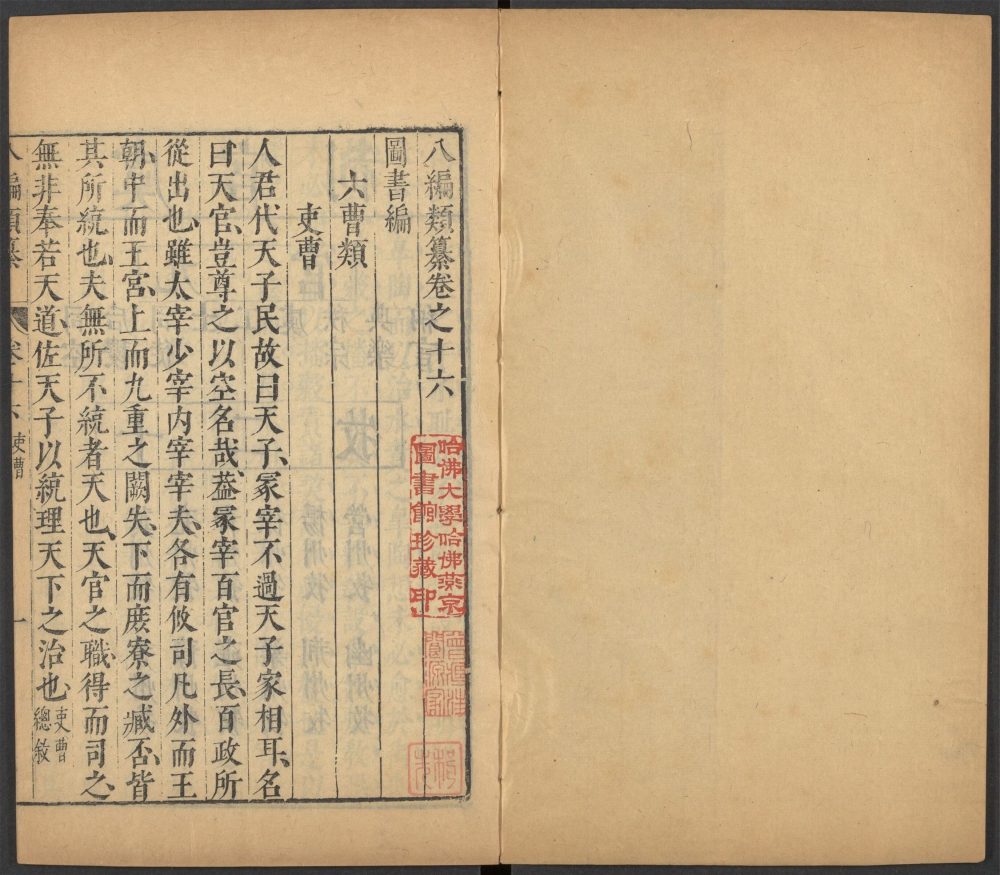 八編類纂卷之十六
圖書編
六曹類
吏曹
人君代天子民故曰天子冢宰不過天子家相耳名
曰天官豈尊之以空名哉葢冢宰百官之長百政所
從出也雖太宰少宰内宰宰夫各有攸司凡外而王
朝中而王宮上而九重之闕失下而庶寮之臧否皆
其所統也夫無所不統者天也天官之職得而司之
無非奉若天道佐天子以統理天下之治也吏曹總敘
八編類纂 卷十六 吏曹 一
哈佛大學哈佛燕京
圖書館珍藏印